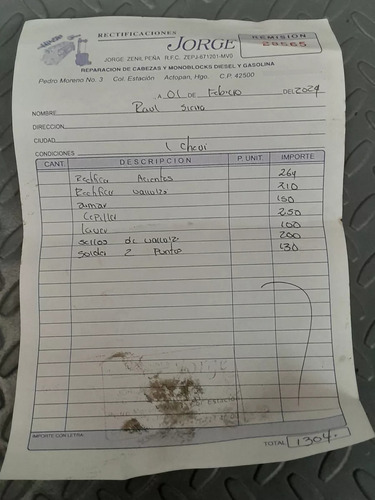 RECTIFICACIONES
JORGE
REMISION
28565
JORGE ZENIL PEÑA R.F.C. ZEPJ-671201-MV0
REPARACION DE CABEZAS Y MONOBLOCKS DIESEL Y GASOLINA
Pedro Moreno No. 3 Col. Estación Actopan, Hgo. C.P. 42500
A 01 DE Febrero DEL 2024
NOMBRE Raul
DIRECCION
CIUDAD
CONDICIONES 1 chevi
CANT. DESCRIPCION P. UNIT. IMPORTE
Rectifica Acientos 264
Rectificar valvulas 210
armar 150
Cepillar 250
lavar 100
sellos de valvula 200
soldar 2 puntos 130
IMPORTE CON LETRA
TOTAL 1304.